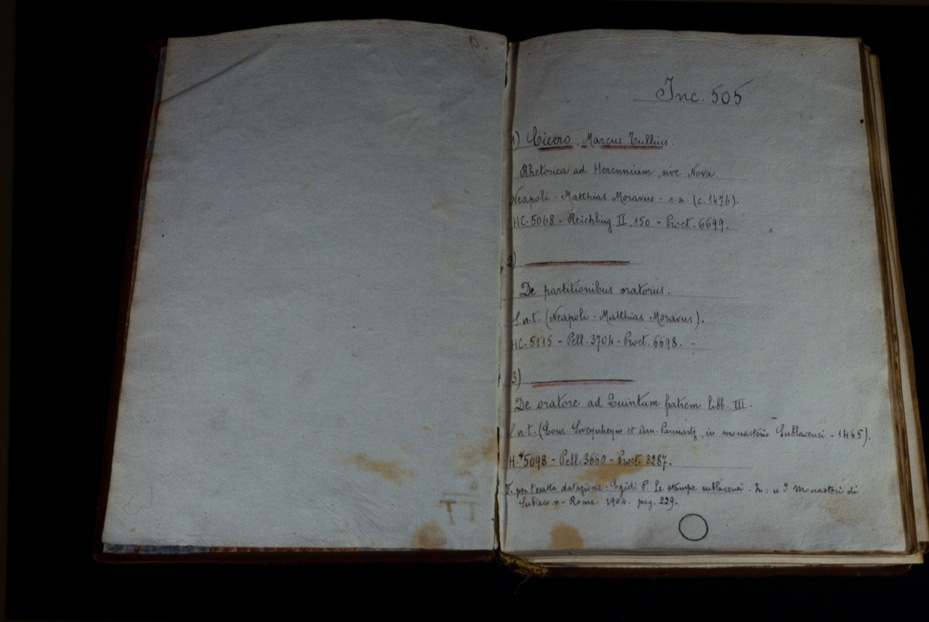 Inc. 505
1) Cicero, Marcus Tullius.
Rhetorica ad Herennium, sive Nova
Neapoli - Matthias Moravus - s.a. (c. 1476).
HC. 5068 - Reichling II, 150 - Proct. 6699.
2)
De partitionibus oratoriis.
S.n.t. (Neapoli - Matthias Moravus).
HC. 5115 - Pell. 3704 - Proct. 6698. -
3)
De oratore ad Quintum fratrem libb. III.
S.n.t. (Conr. Sweynheym et Arn. Pannartz, in monasterio Sublacensi - 1465).
H.*5098 - Pell. 3660 - Proct. 3287.
V. per l'esatta datazione: Egidi P. Le stampe sublacensi - In: "I Monasteri di
Subiaco" - Roma - 1904. pag. 229.